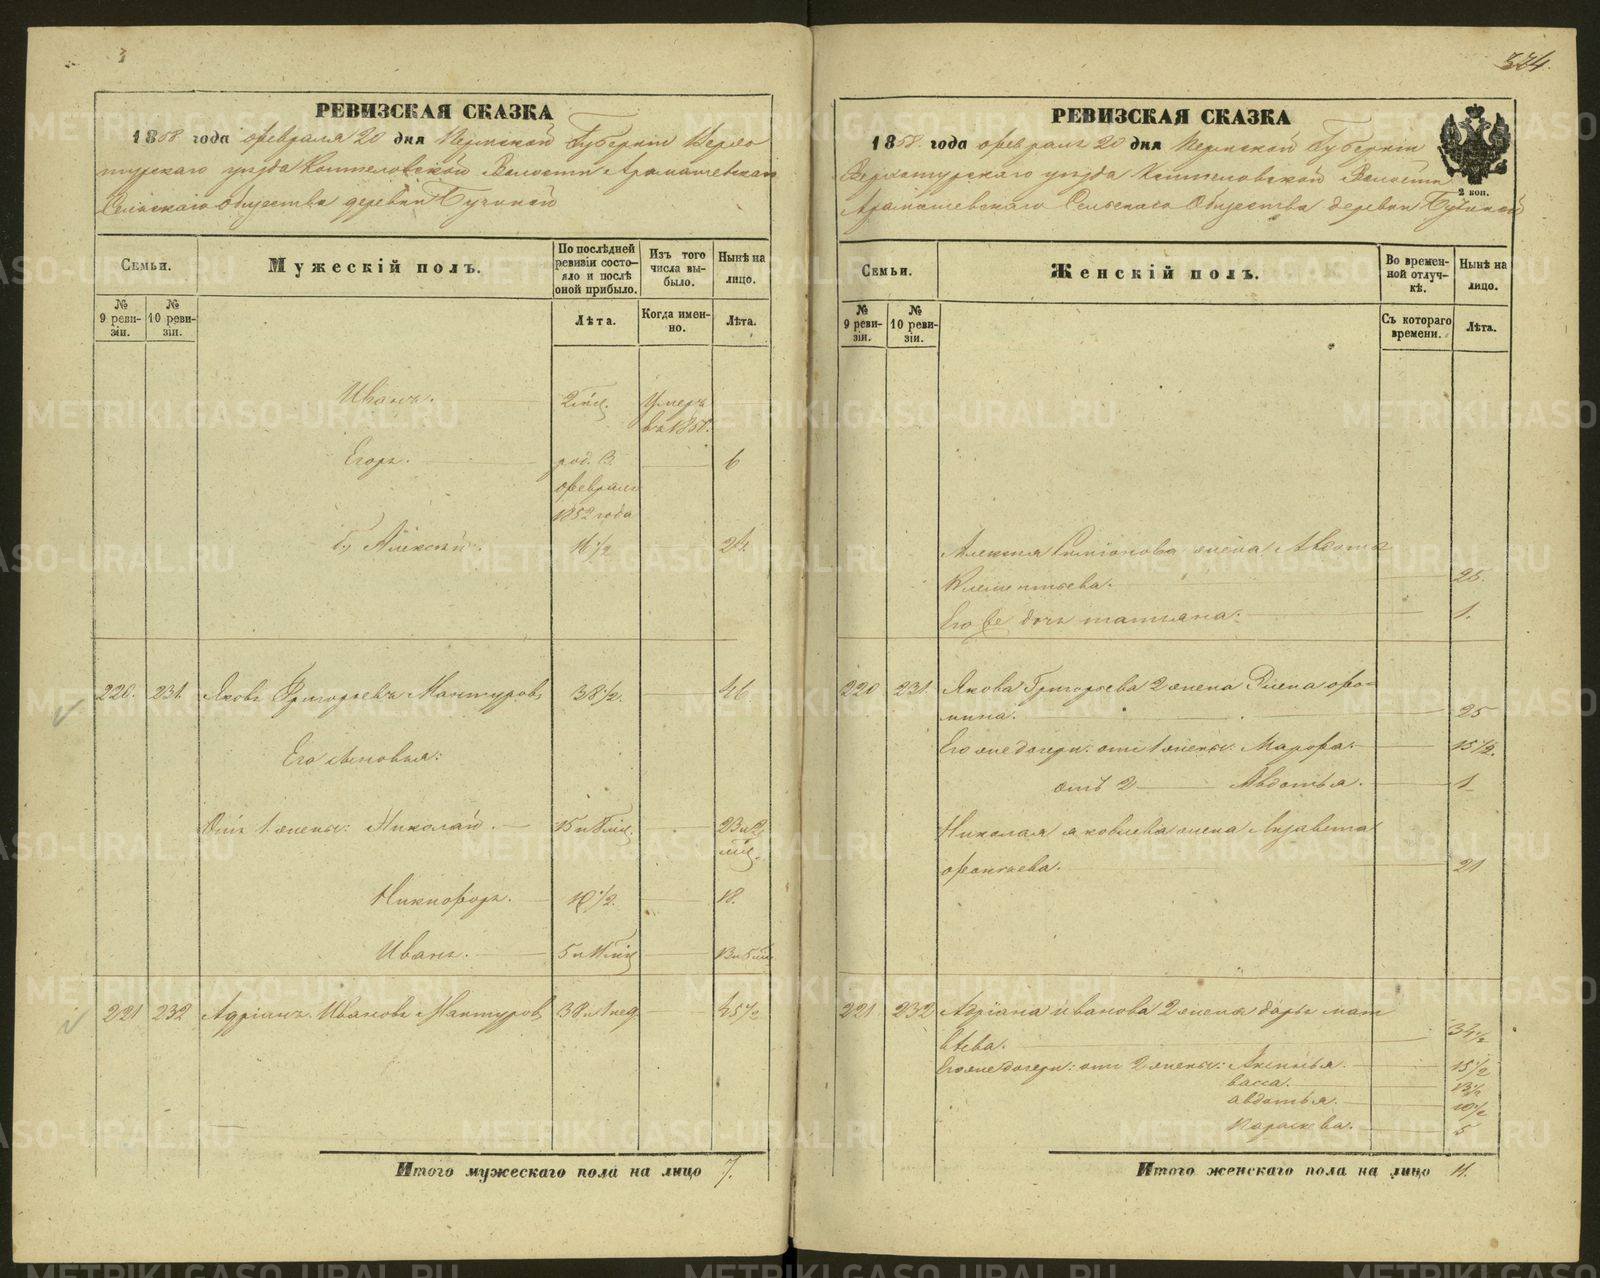 3
РЕВИЗСКАЯ СКАЗКА
1858 года февраля 20 дня Пермской Губерніи Верхо
турскаго уезда Коптеловской Волости Арамашевскаго
Сельскаго Общества деревни Бучиной
Семьи.
Мужескій полъ.
По послѣдней ревизіи состояло и послѣ оной прибыло.
Изъ того числа выбыло.
Нынѣ на лицо.
№ 9 ревизіи.
№ 10 ревизіи.
Лѣта.
Когда именно.
Лѣта.
Иванъ. 2 мѣс. Умеръ
въ 1850.
Егоръ. род. 3 6
февраля
1852 года
Алексѣй. 16½ 24.
220. 231. Яковъ Григорьевъ Мантуровъ 38½. 46.
Его сыновья:
Отъ 1 жены: Николай. 15 и 6 мѣс. 23 и 2
мѣс.
Никифоръ. 10½. 18.
Иванъ. 5 и 11 мѣс. 13 и 5 мѣс
221 232 Адріанъ Ивановъ Мантуровъ 38. 45½
Итого мужескаго пола на лицо 7.
374.
РЕВИЗСКАЯ СКАЗКА
1858. года февраля 20 дня Пермской Губерніи
Верхотурскаго уезда Коптеловской Волости
Арамашевскаго Сельскаго Общества деревни Бучиной
2 коп.
Семьи.
Женскій полъ.
Во временной отлучкѣ.
Нынѣ на лицо.
№ 9 ревизіи.
№ 10 ревизіи.
Съ котораго времени.
Лѣта.
Алексѣя Симіонова жена Авдотья
Клементьева. 25.
Его же дочь татьяна. 1.
220 231. Якова Григорьева 2 жена Елена фо-
мина. 25
Его же дочери: отъ 1 жены: Марфа. 15½.
отъ 2 Авдотья. 1
Николая яковлева жена Лизавета
21
221. 232 Адріана иванова 2 жена дарья мат
вѣева. 34½
Его же дочери: отъ 2 жены: Аксинья. 15½
васса. 13½
авдотья. 10½
Параскева. 5
Итого женскаго пола на лицо 11.
METRIKI.GASO-URAL.RU